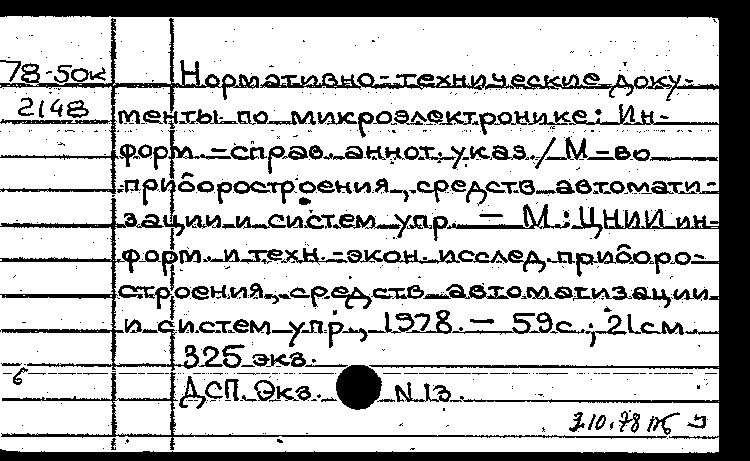 78-50к Нормативно-технические доку-
2148 менты по микроэлектронике: Ин-
форм.-справ. аннот. указ. / М-во
приборостроения, средств автомати-
зации и систем упр. — М.: ЦНИИ ин-
форм. и техн.-экон. исслед. приборо-
строения, средств автоматизации
и систем упр., 1978. — 59с.; 21см.
325 экз.
6 ДСП. Экз. N 13.
3.10.78